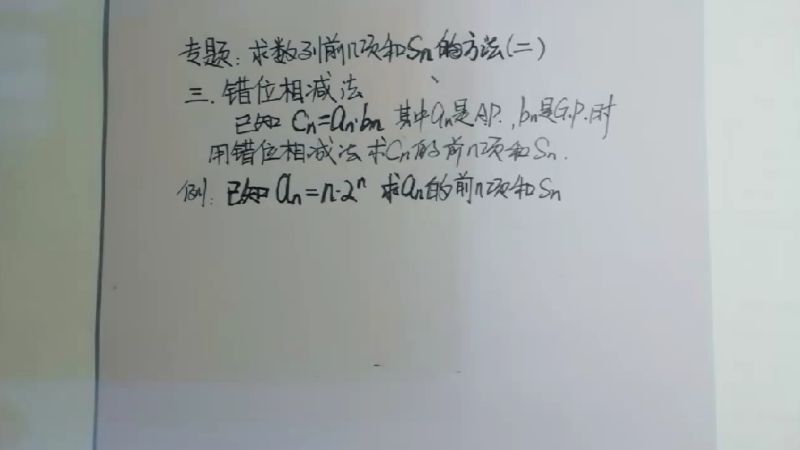 专题：求数列前n项和Sn的方法(二)
三.错位相减法
已知 Cn=an·bn 其中an是A.P.,bn是G.P.时
用错位相减法求Cn的前n项和Sn.
例：已知 an=n·2ⁿ 求an的前n项和Sn